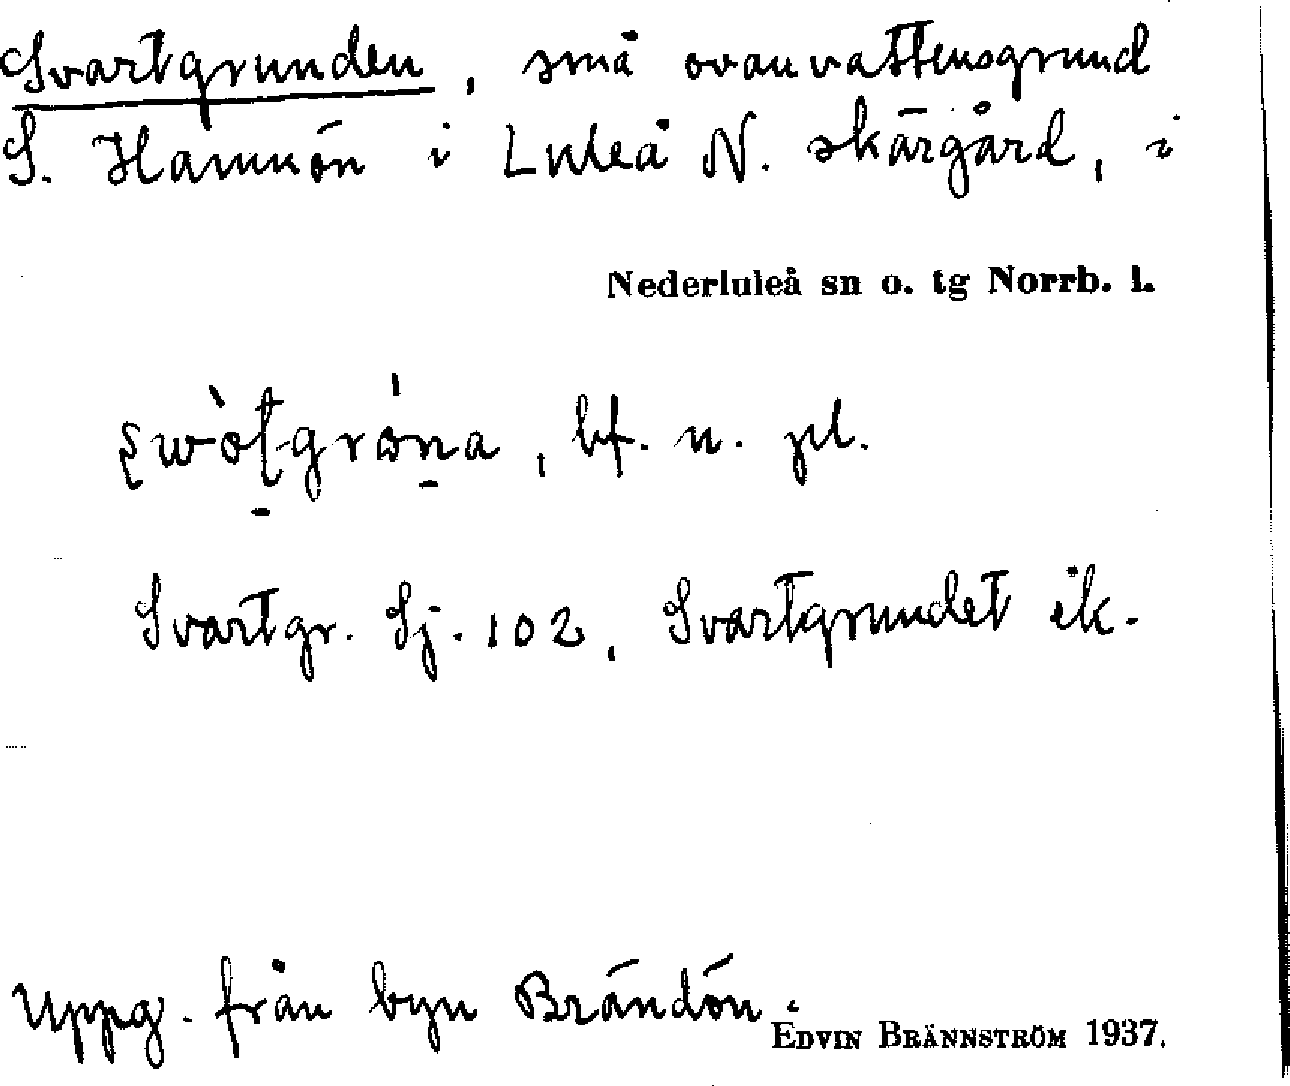 Svartgrunden, små ovanvattensgrund
S. Hamnön i Luleå N. skärgård, i
Nederluleå sn o. tg Norrb. l.
bf. n. pl.
Svartgr. Sj. 102, Svartgrundet ek.
Uppg. från byn Brändön.
EDVIN BRÄNNSTRÖM 1937.